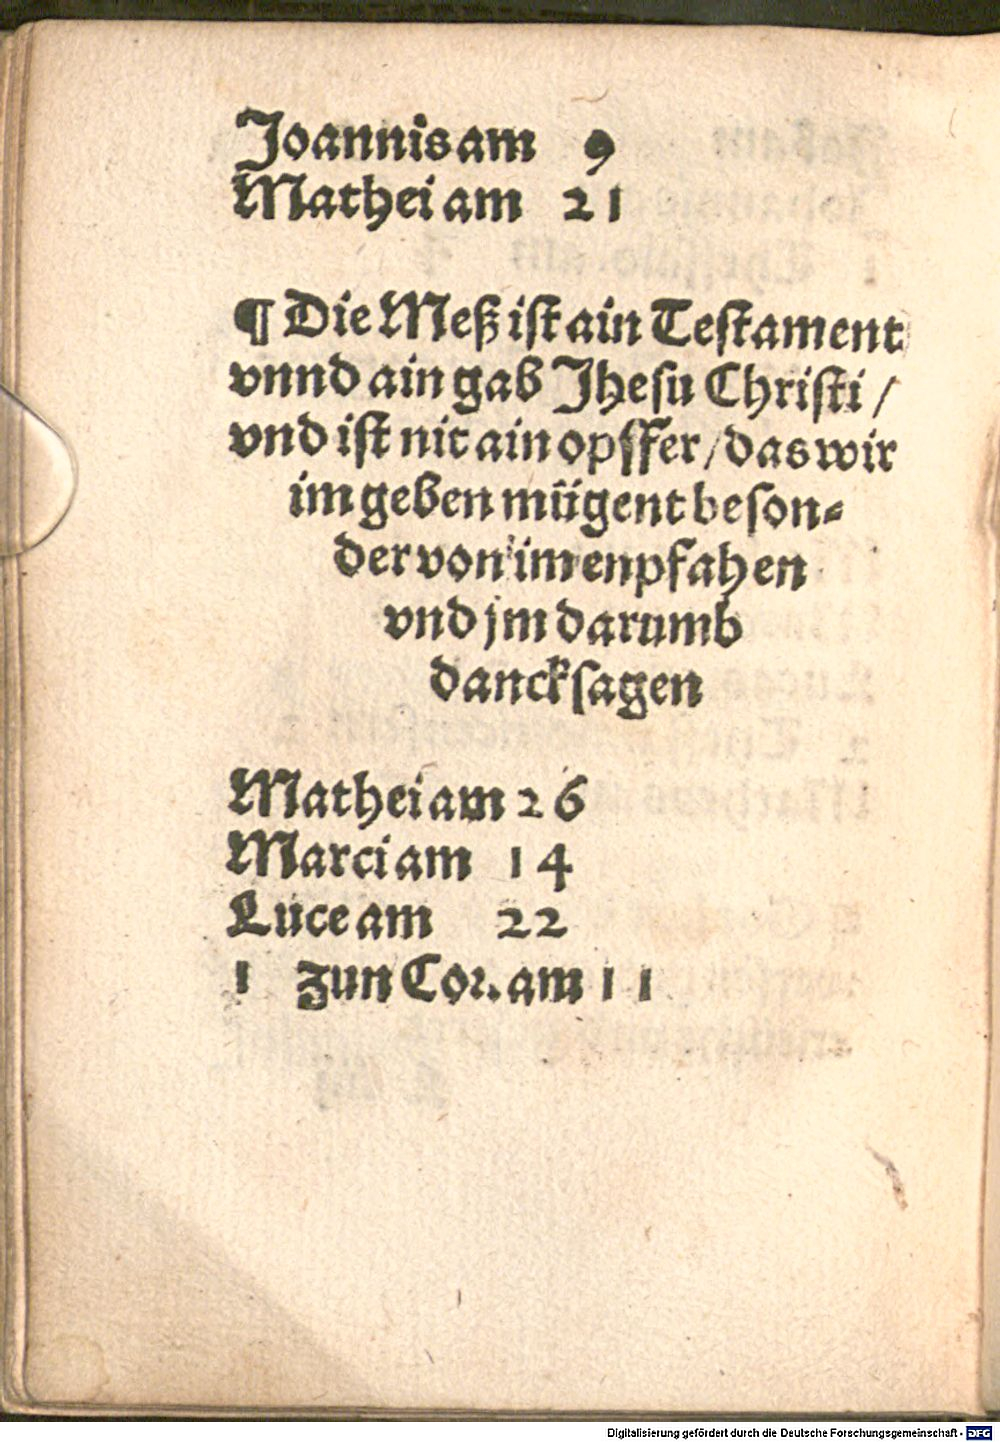 Joannis am 9
Mathei am 21
¶ Die Meß ist ain Testament
vnnd ain gab Jhesu Christi /
vnd ist nit ain opffer / das wir
im geben mügent beson⸗
der von im enpfahen
vnd jm darumb
dancksagen
Mathei am 26
Marci am 14
Luce am 22
1 zun Cor. am 11
Digitalisierung gefördert durch die Deutsche Forschungsgemeinschaft - DFG